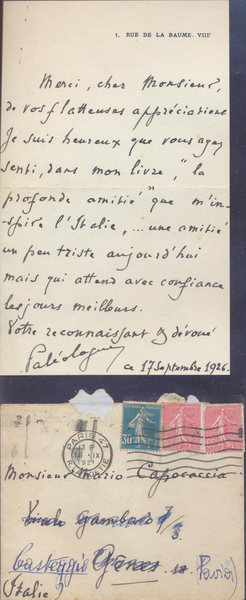 1, RUE DE LA BAUME. VIIIᵉ
Merci, cher Monsieur,
de vos flatteuses appréciations.
Je suis heureux que vous ayez
senti, dans mon livre, "la
profonde amitié" que m'in-
spire l'Italie, ... une amitié
un peu triste aujourd'hui
mais qui attend avec confiance
les jours meilleurs.
Votre reconnaissant & dévoué
Paléologue
ce 17 Septembre 1926.
PARIS 47
Monsieur Mario Capocaccia
Viale Gambaro
Casteggio Gênes (Pavia)
Italie